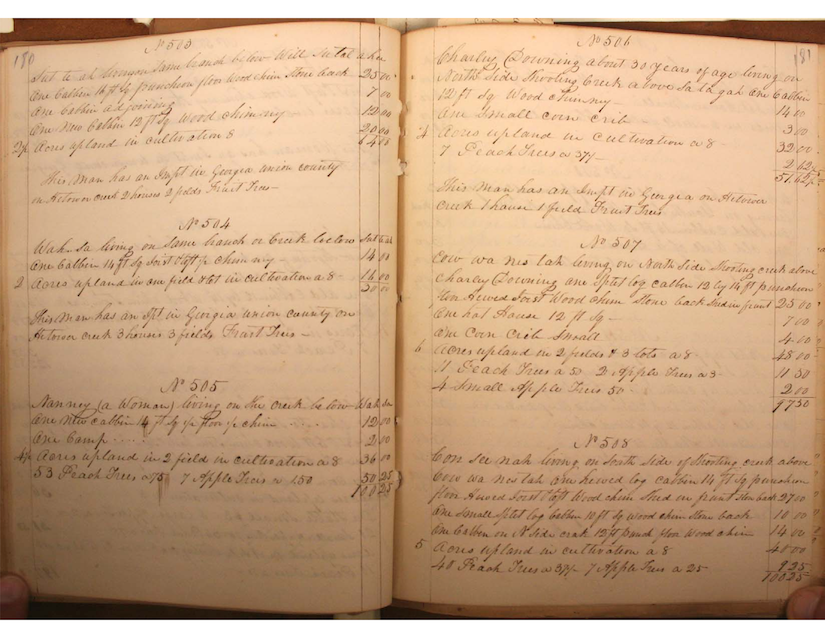 180
No 503
One Cabbin 16 ft Sq puncheon floor Wood chim Stone back 25 00
One Cabbin adjoining 7 00
One New Cabbin 12 ft Sq Wood chimny 12 00
2½ Acres upland in cultivation 8 20 00
64 00
This Man has an Impt in Georgia union county
on Hetower creek 2 houses 2 fields Fruit Trees
No 504
living on Same branch or Creek below
One Cabbin 14 ft Sq Joist & loft chimny 14 00
2 Acres upland in one field & lot in cultivation a 8 16 00
30 00
This Man has an Ipt in Georgia union county on
Hetower creek 3 houses 3 fields Fruit Trees
No 505
Nanny (a Woman) living on the creek below
One New cabbin 14 ft Sq floor chim 12 00
One Camp 2 00
4½ Acres upland in 2 field in cultivation a 8 36 00
53 Peach Trees a 75 7 Apple Trees a 150 50 25
100 25
181
No 506
Charley Downing about 30 years of age living on
North Side Shooting Creek above One Cabbin
12 ft Sq Wood chimny 14 00
One Small corn crib 3 00
4 Acres upland in cultivation a 8 32 00
7 Peach Trees a 37½ 2 62½
51.62½
This Man has an Impt in Georgia on Hetower
Creek 1 house 1 field Fruit Trees
No 507
Cow wa nes tah living on North Side Shooting creek above
Charley Downing one Split log cabbin 12 by 14 ft puncheon
floor Hewed Joist Wood chim Stone back Shed in front 25 00
One hot House 12 ft Sq 7 00
One corn Crib Small 4 00
6 Acres upland in 2 fields & 3 lots a 8 48 00
Peach Trees a 50 2 Apple Trees a 3 11 50
4 Small Apple Trees 50 2 00
97 50
No 508
living on South Side of Shooting creek above
Cow wa nes tah one hewed log cabbin 14 ft Sq puncheon
floor Hewed Joist & loft Wood chim Shed in front Stone back 27 00
One Small Split log Cabbin 10 ft Sq wood chim Stone back 10 00
One Cabbin on N Side creek 12 ft punch floor Wood chim 14 00
5 Acres upland in cultivation a 8 40 00
40 Peach Trees a 37½ 7 Apple Trees a 25 9 25
100 25